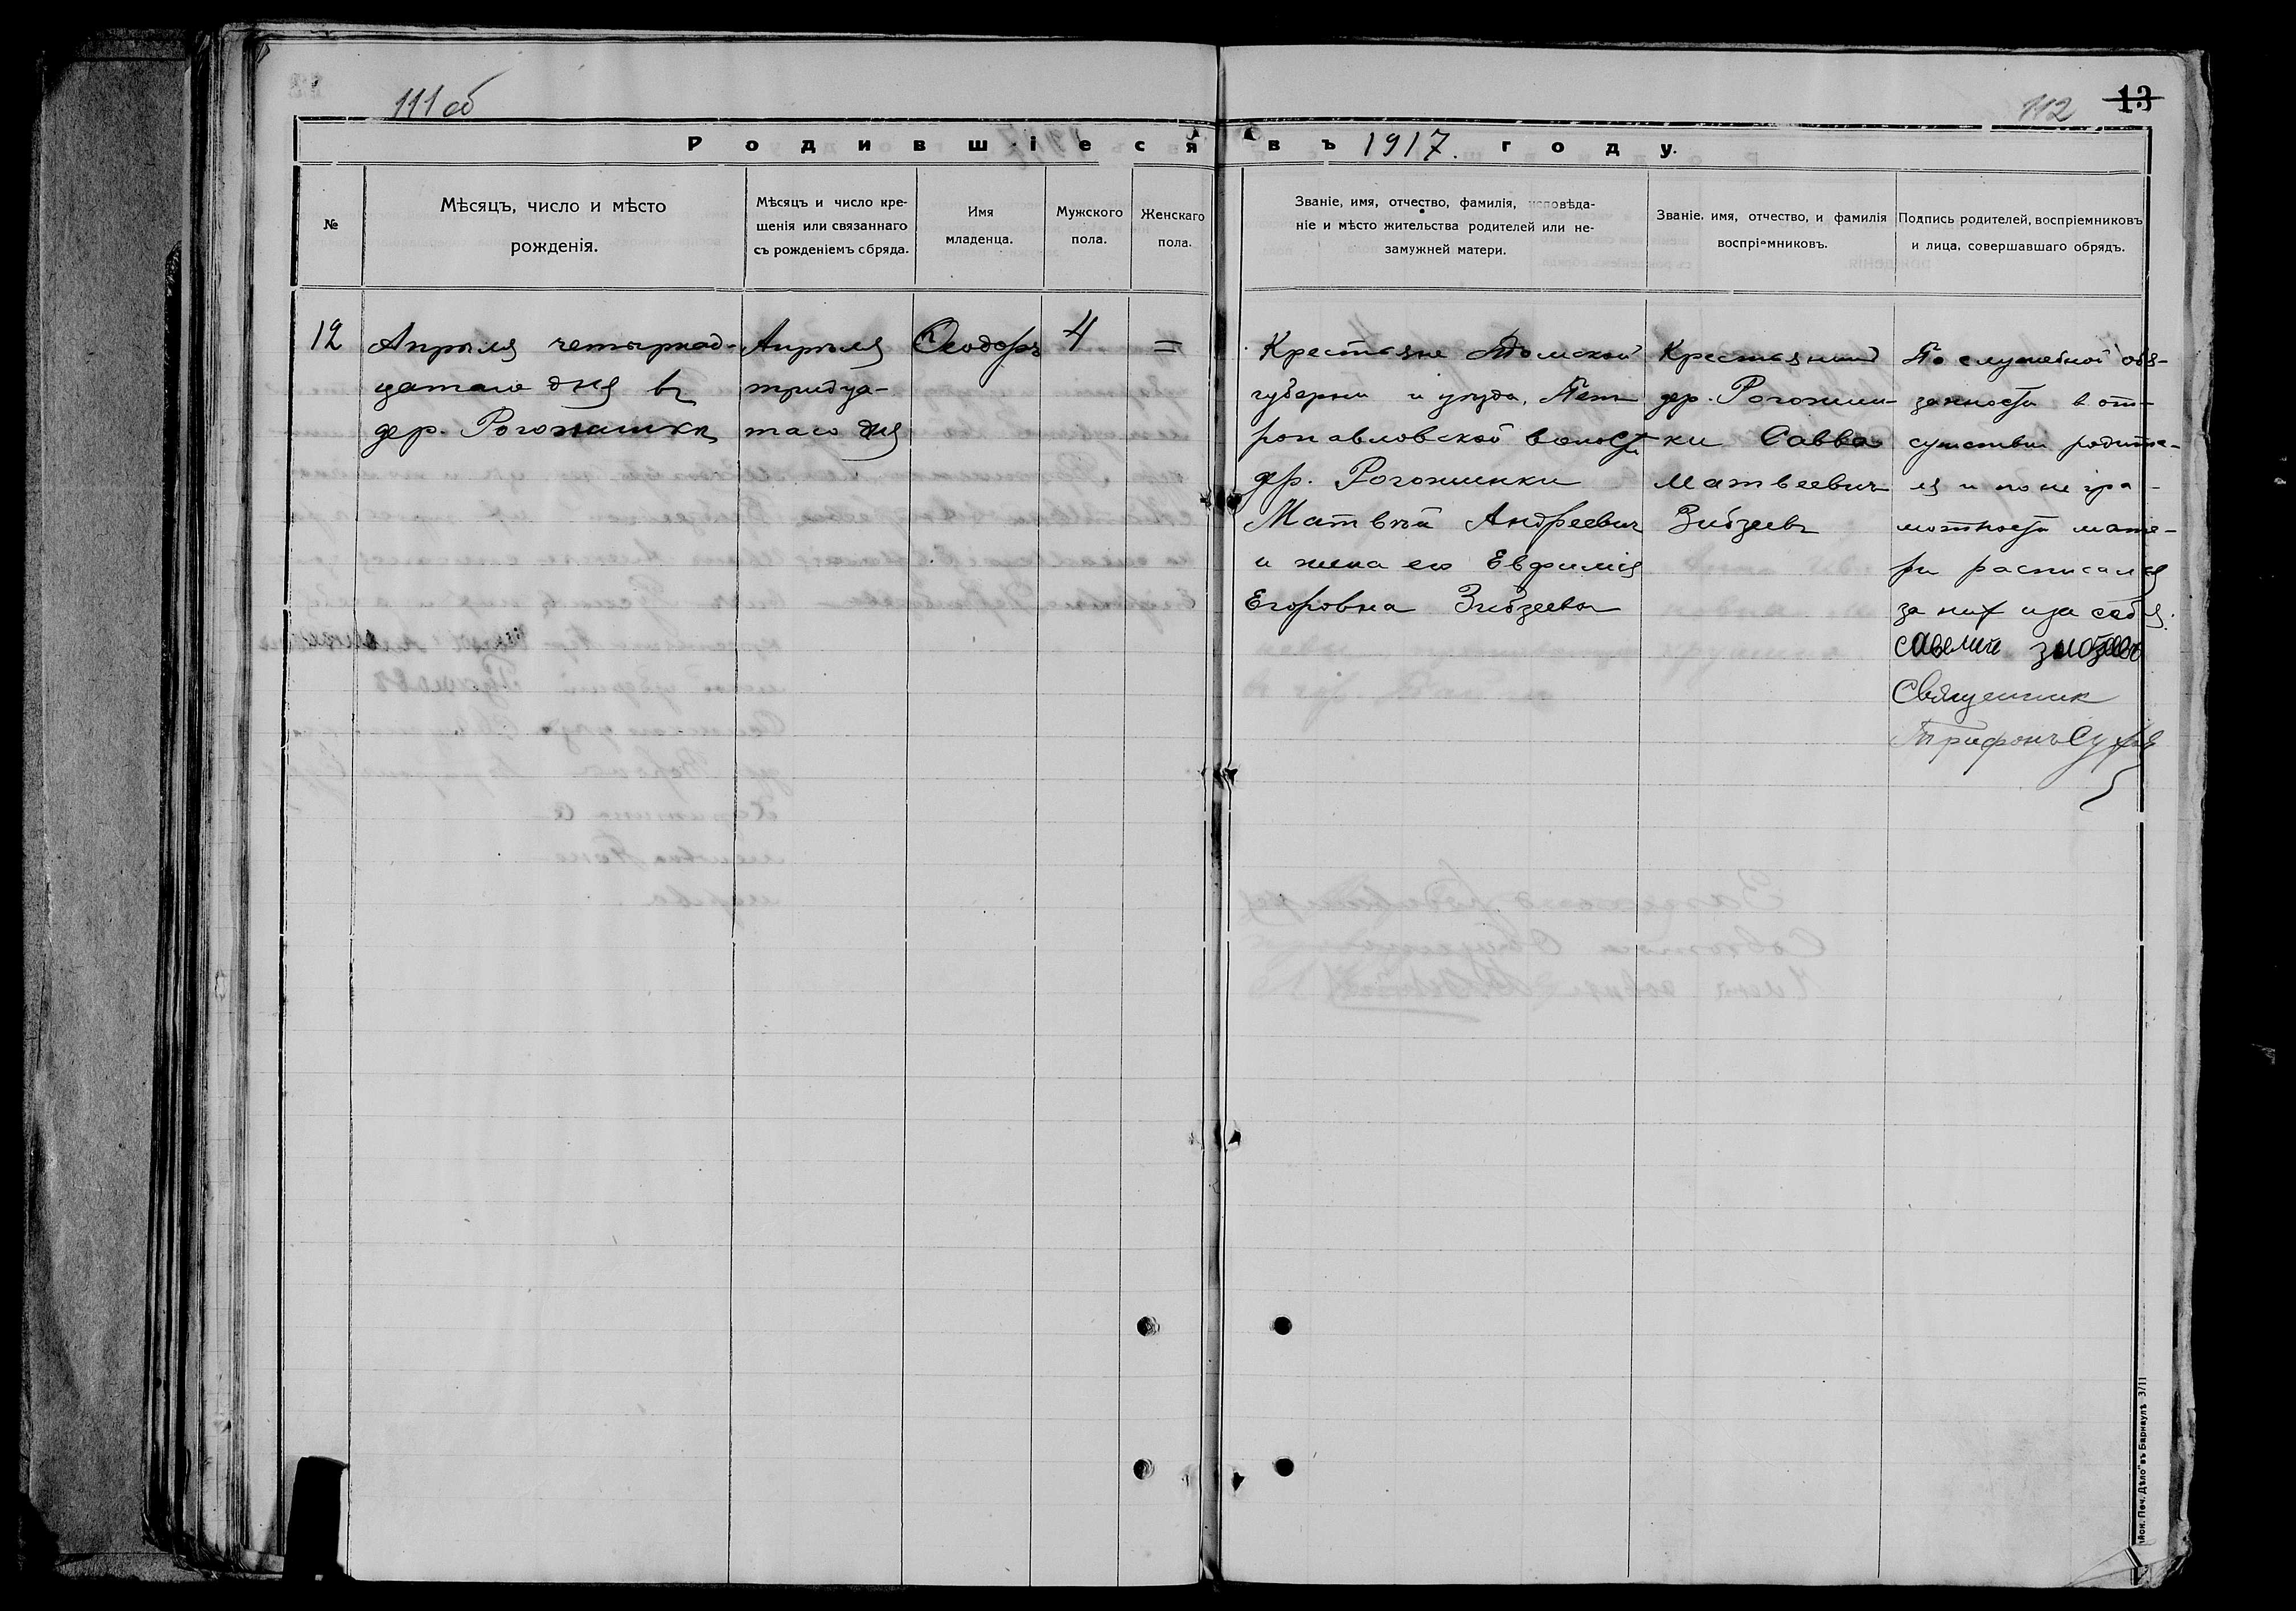 111 об
112 13
Родившіеся въ 1917. году.
№
Мѣсяцъ, число и мѣсто
рожденія.
Мѣсяцъ и число кре-
щенія или связаннаго
съ рожденіемъ обряда.
Имя
младенца.
Мужского
пола.
Женскаго
пола.
Званіе, имя, отчество, фамилія, исповѣда-
ніе и мѣсто жительства родителей или не-
замужней матери.
Званіе, имя, отчество, и фамилія
воспріемниковъ.
Подпись родителей, воспріемниковъ
и лица, совершавшаго обрядъ.
12
Апрѣля четырнад-
цатаго дня въ
дер. Рогожишкѣ
Апрѣля
тридца-
таго дня
Ѳеодоръ
4
=
Крестьяне Томской
губерни и уѣзда, Пет
ропавловской волости
дер.
Матвѣй Андреевич
и жена его Евфимія
Егоровна Зибзеева
Крестьянинъ
дер.
ки Савва
Матвеевич
Зибзеевъ
По служебной обя-
занности в от-
сутстви родите-
ля и по негра-
мотности мате-
ри расписался
за них и за себя.
савелий зибзеевъ
Священник
Трифонъ
Печ. Дѣло" въ Барнаулѣ 3/11